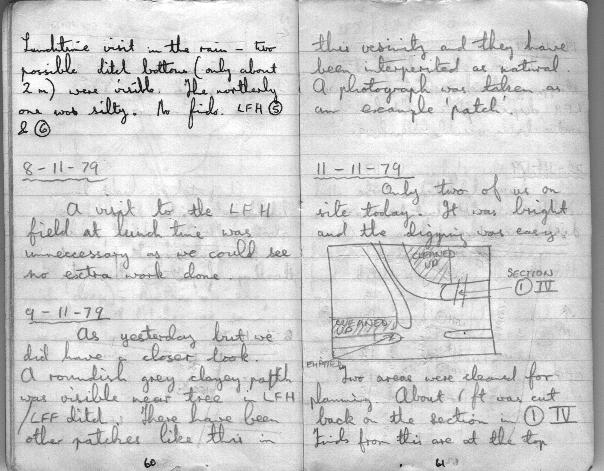 Lunchtime visit in the rain – two
possible ditch bottoms (only about
2 m) were visible. The northerly
one was silty. No finds. LFH ⑤
& ⑥
8-11-79
A visit to the LFH
field at lunch time was
unneccessary as we could see
no extra work done
9-11-79
As yesterday but we
did have a closer look.
A roundish grey clayey patch
was visible near tree in LFH
/LFF ditch. There have been
other patches like this in
60
this vesinity and they have
been interpreted as natural.
A photograph was taken as
an example 'patch'.
11-11-79
Only two of us on
site today. It was bright
and the digging was easy.
CLEANED
UP
SECTION
① IV
CLEANED
UP
EMPTIED
Two areas were cleaned for
planning. About 1 ft was cut
back on the section in ① IV
Finds from this are at the top
61